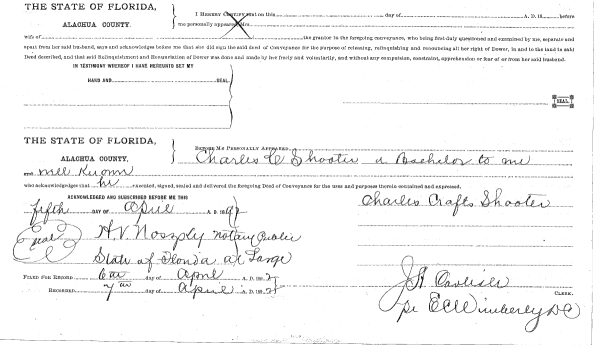 THE STATE OF FLORIDA,
ALACHUA COUNTY.
I HEREBY CERTIFY that on this day of A. D. 18 before
me personally appeared Mrs.
wife of the grantor to the foregoing conveyance, who being first duly questioned and examined by me, separate and
apart from her said husband, says and acknowledges before me that she did sign the said deed of Conveyance for the purpose of releasing, relinquishing and renouncing all her right of Dower, in and to the land in said
Deed described, and that said Relinquishment and Renunciation of Dower was done and made by her freely and voluntarily, and without any compulsion, constraint, apprehension or fear of or from her said husband.
IN TESTIMONY WHEREOF I HAVE HEREUNTO SET MY
HAND AND SEAL
SEAL
THE STATE OF FLORIDA,
ALACHUA COUNTY.
BEFORE ME PERSONALLY APPEARED
Charles C Shooter a Bachelor to me
and well known
who acknowledges that he executed, signed, sealed and delivered the foregoing Deed of Conveyance for the uses and purposes therein contained and expressed.
ACKNOWLEDGED AND SUBSCRIBED BEFORE ME THIS
fifth DAY OF April A. D. 1892
Charles Crafts Shooter
Seal
H. V. Notary Public
State of Florida at Large
FILED FOR RECORD 6th day of April A. D. 1892
RECORDED 7th day of April A. D. 1892
J H Carlisle
CLERK.
pr E C Wimberly DC